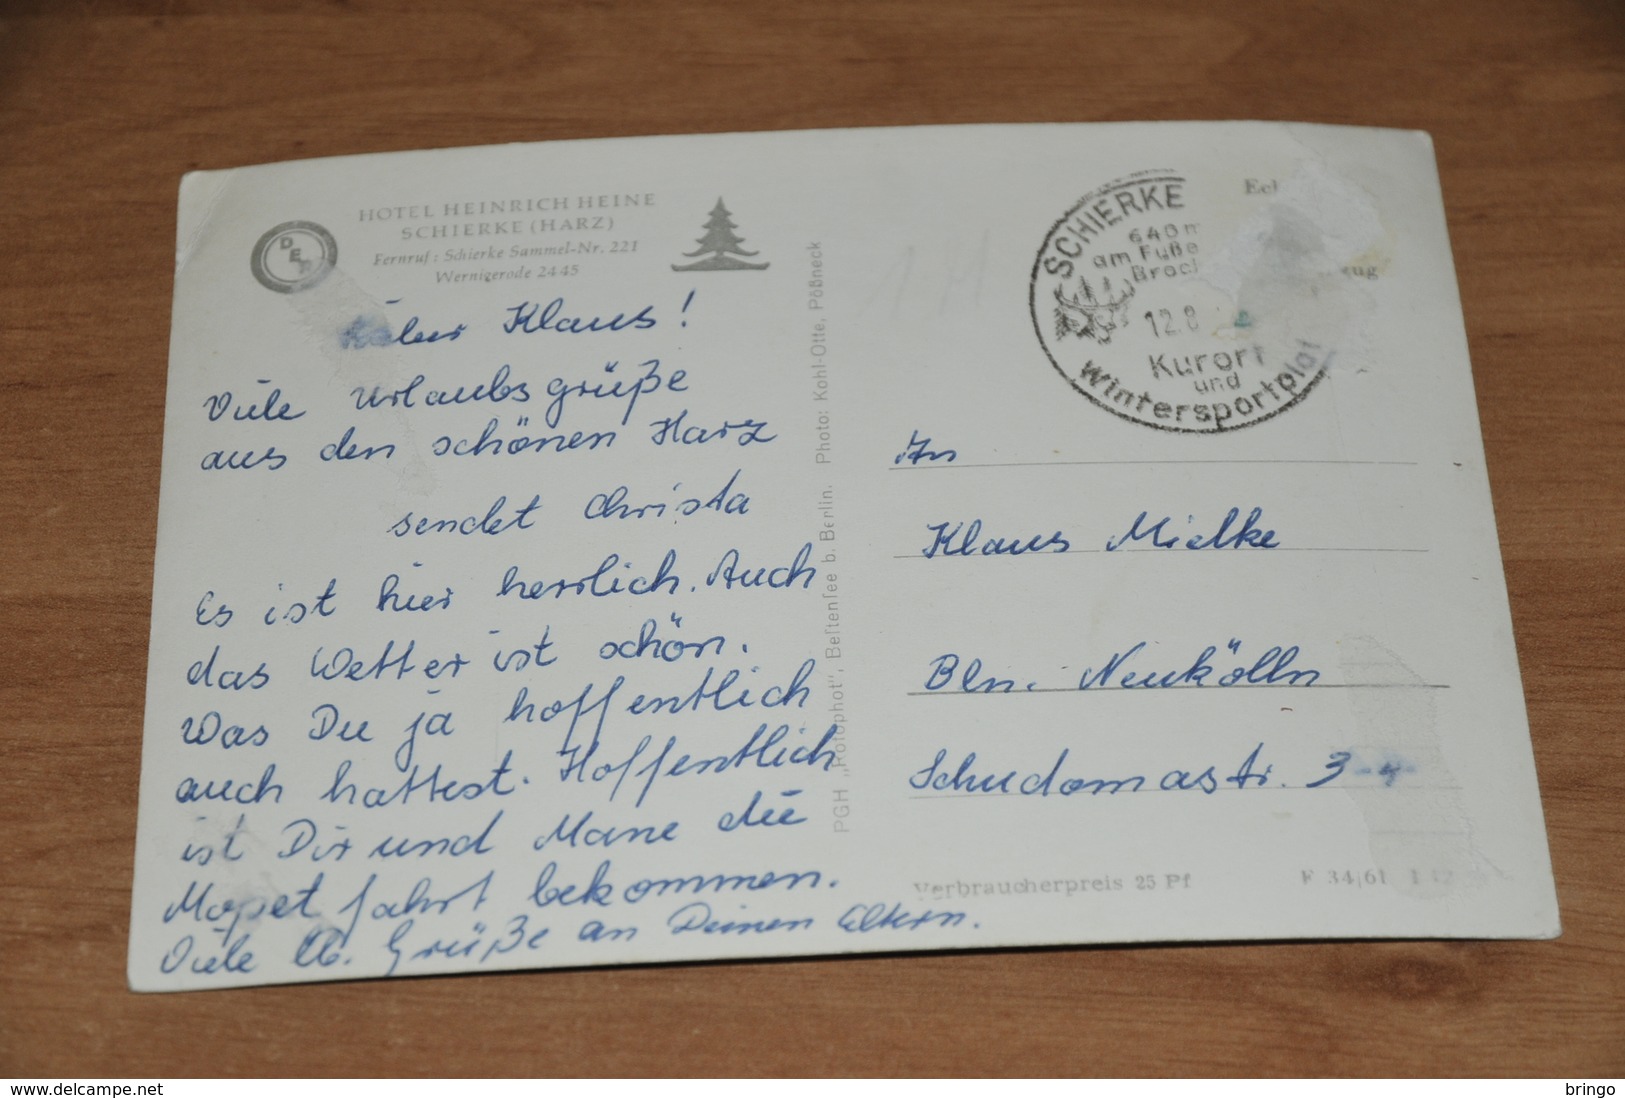 DER
HOTEL HEINRICH HEINE
SCHIERKE (HARZ)
Fernruf: Schierke Sammel-Nr. 221
Wernigerode 2445
Klaus!
Viele Urlaubsgrüße
aus den schönen Harz
sendet Christa
Es ist hier herrlich. Auch
das Wetter ist schön.
Was Du ja hoffentlich
auch hattest. Hoffentlich
ist Dir und Mane die
Mopetfahrt bekommen.
Viele lb. Grüße an Deinen Eltern.
PGH „Rotophot", Bestensee b. Berlin. Photo: Kohl-Otte, Pößneck
SCHIERKE
640 m
am Fuße
Brock
12.8
Kurort
und
Wintersportplat
An
Klaus Mielke
Bln. Neukölln
Schudomastr. 3-4
Verbraucherpreis 25 Pf
F 34/61
delcampe.net
bringo